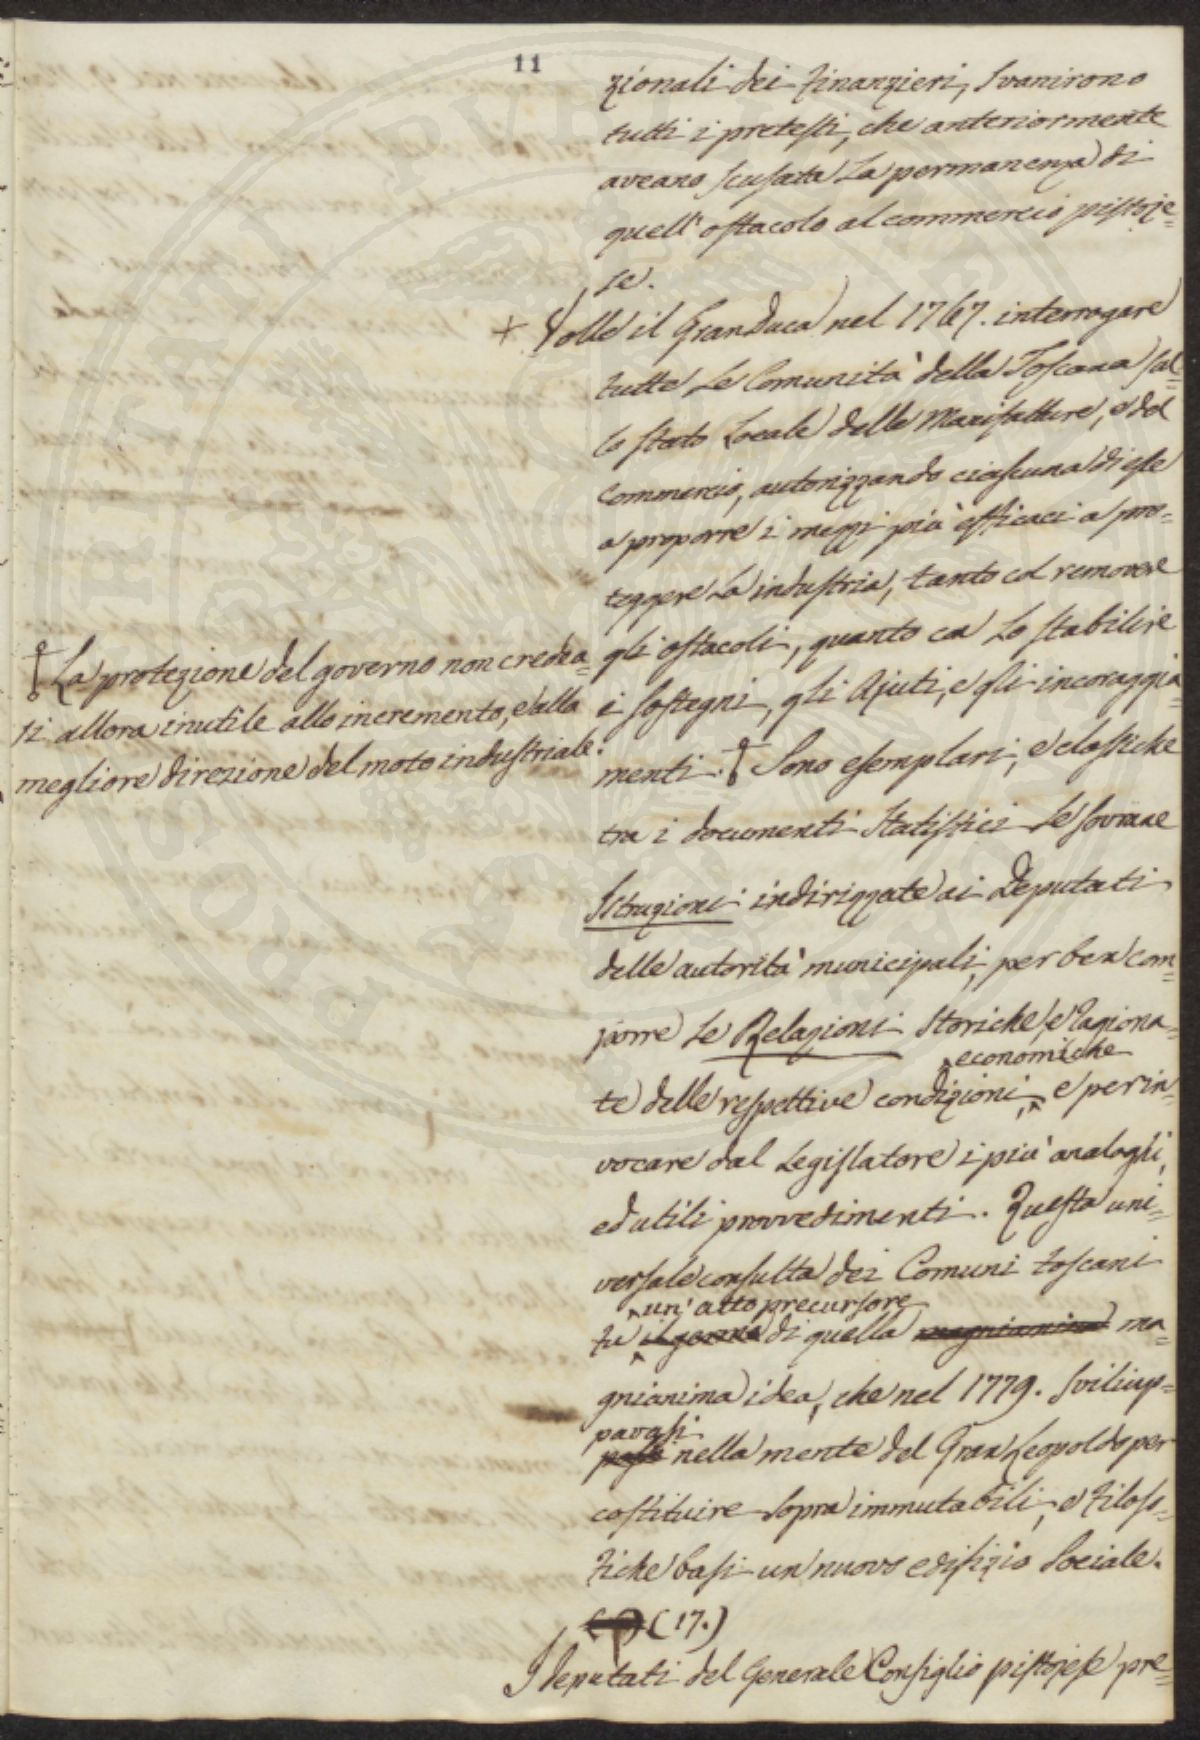 11
zionali dei Finanzieri, svanirono
tutti i pretesti, che anteriormente
aveano scusata la permanenza di
quell'ostacolo al commercio pistoje=
se.
+ Volle il Gran Duca nel 1767. interrogare
tutte le Comunità della Toscana sul=
lo stato locale delle Manifatture, e del
commercio, autorizzando ciascuna di esse
a proporre i mezzi più efficaci a pro=
teggere la industria, tanto col removere
gli ostacoli, quanto con lo stabilire
i sostegni, gli ajuti, e gli incoraggia=
menti. Sono esemplari, e classiche
tra i documenti statistici le sovrane
Istruzioni indirizzate ai Deputati
delle autorità municipali, per ben com=
porre le Relazioni storiche, e ragiona=
economiche
te delle respettive condizioni, e per in=
vocare dal Legislatore i più analoghi,
ed utili provvedimenti. Questa uni=
versale consulta dei Comuni toscani
un' atto precursore
fu il germe di quella magnianima ma=
gnianima idea, che nel 1779. svilup=
pavasi
nella mente del Gran Leopoldo per
costituire sopra immutabili, e filoso=
fiche basi un nuovo edifizio sociale.
(17.)
I deputati del Generale Consiglio pistojese pre=
La protezione del governo non credea=
si allora inutile allo incremento, e alla
megliore direzione del moto industriale.